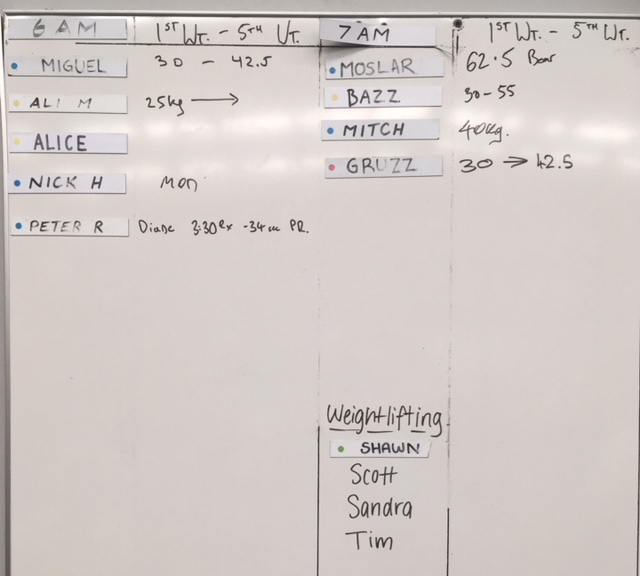 6 AM 1ST WT. - 5TH WT.
MIGUEL 30 - 42.5
ALI M 25kg →
ALICE
NICK H Mon
PETER R Diane 3:30 Rx -34 PR.
7 AM 1ST WT. - 5TH WT.
MOSLAR 62.5 Bar
BAZZ 30-55
MITCH 40kg.
GRUZZ 30 → 42.5
Weightlifting
SHAWN
Scott
Sandra
Tim